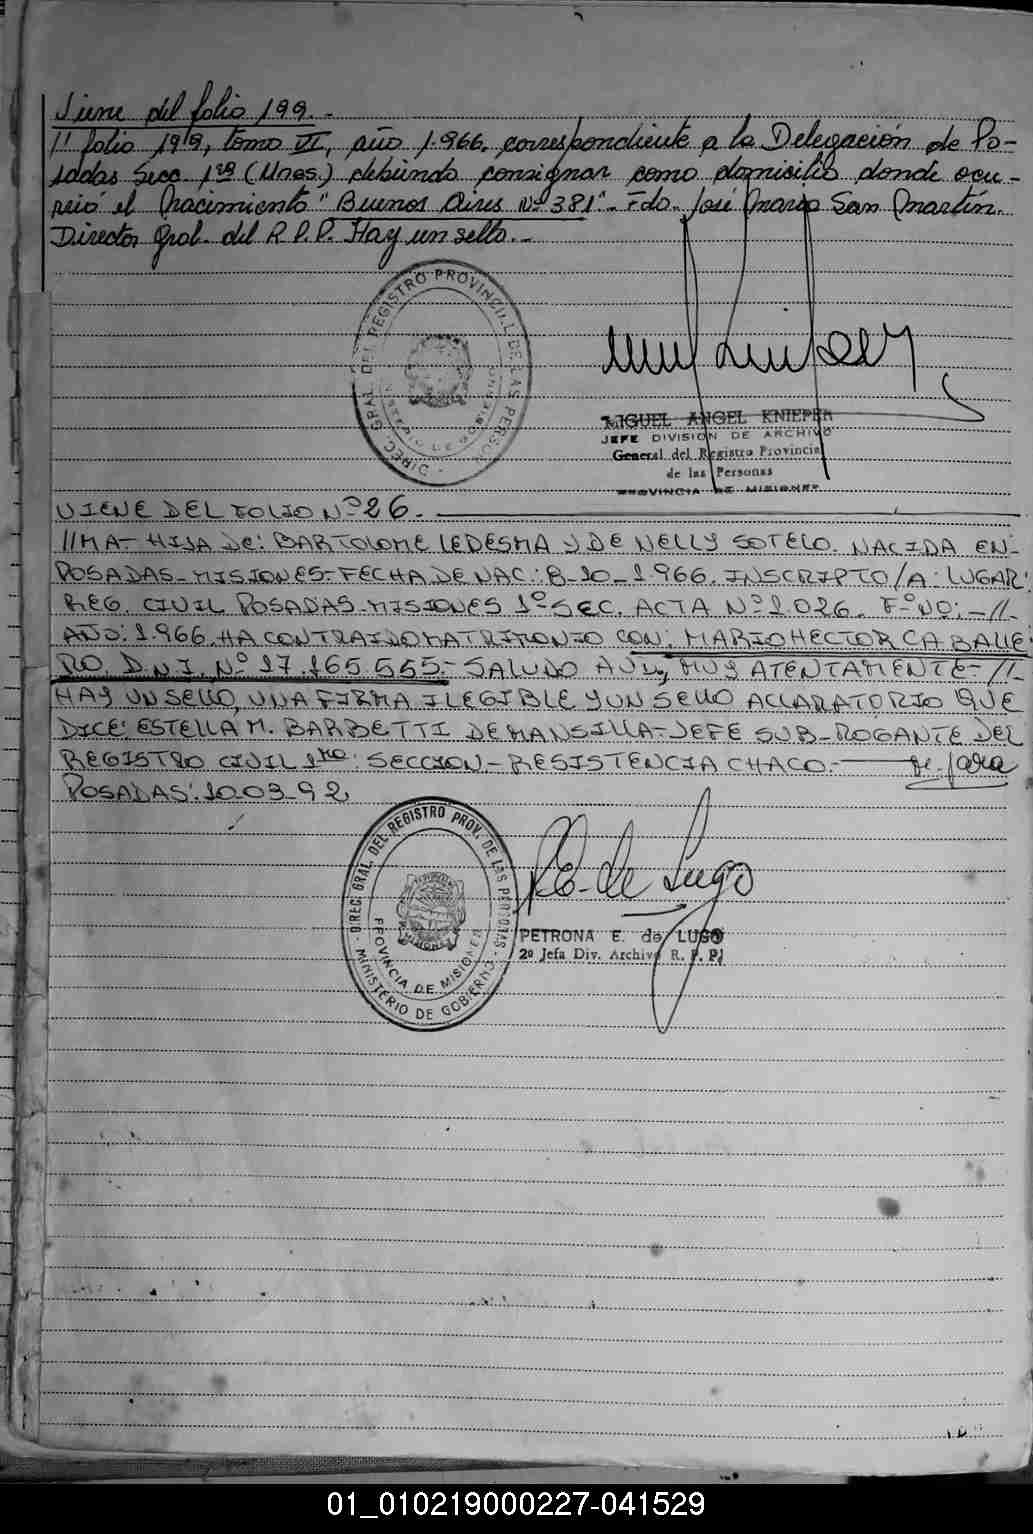 Viene del folio 199.-
// folio 199, tomo VI, año 1.966, correspondiente a la Delegación de Po-
sadas Secc. 1ra (Mnes.) debiendo consignar como domicilio donde ocu-
rrió el Nacimiento "Buenos Aires Nº 381".- Fdo. José María San Martín.
Director Gral. del R.P.P. Hay un sello.-
DIREC. GRAL. DEL REGISTRO PROVINCIAL DE LAS PERSONAS
MIGUEL ANGEL KNIEPER
JEFE DIVISION DE ARCHIVO
General del Registro Provincial
de las Personas
PROVINCIA DE MISIONES
VIENE DEL FOLIO Nº 26.
//MA- HIJA DE: BARTOLOME LEDESMA Y DE NELLY SOTELO. NACIDA EN-
POSADAS-MISIONES-FECHA DE NAC: 8-10-1.966. INSCRIPTO/A: LUGAR:
REG. CIVIL POSADAS-MISIONES 1º SEC. ACTA Nº 1.026. Fº NO:-//-
AÑO: 1.966. HA CONTRAIDO MATRIMONIO CON: MARIO HECTOR CABALLE
RO. D.N.I. Nº 17.165.555.- SALUDO A UD., MUY ATENTAMENTE-//-
HAY UN SELLO, UNA FIRMA ILEGIBLE Y UN SELLO ACLARATORIO QUE
DICE: ESTELLA M. BARBETTI DE MANSILLA-JEFE SUB-ROGANTE DEL
REGISTRO CIVIL 1ra: SECCION-RESISTENCIA CHACO.- de Jara
POSADAS: 10-03-92
DIREC. GRAL. DEL REGISTRO PROV. DE LAS PERSONAS - MINISTERIO DE GOBIERNO -
PROVINCIA DE MISIONES
MISIONES
P.E. de Lugo
PETRONA E. de LUGO
2º Jefa Div. Archivo R. P. P.
01_010219000227-041529